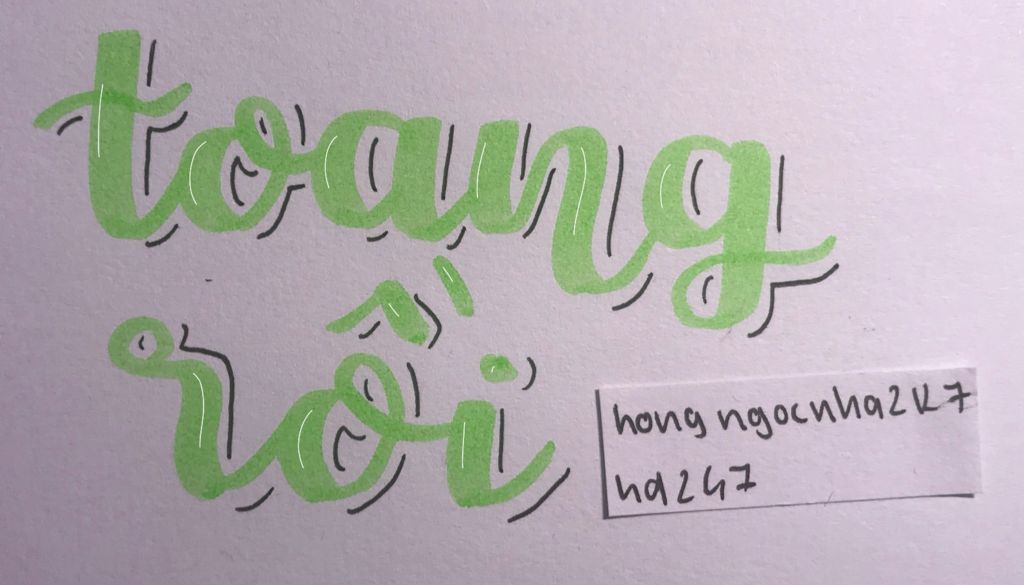 toang
rồi
hongngocnha2k7
ha247